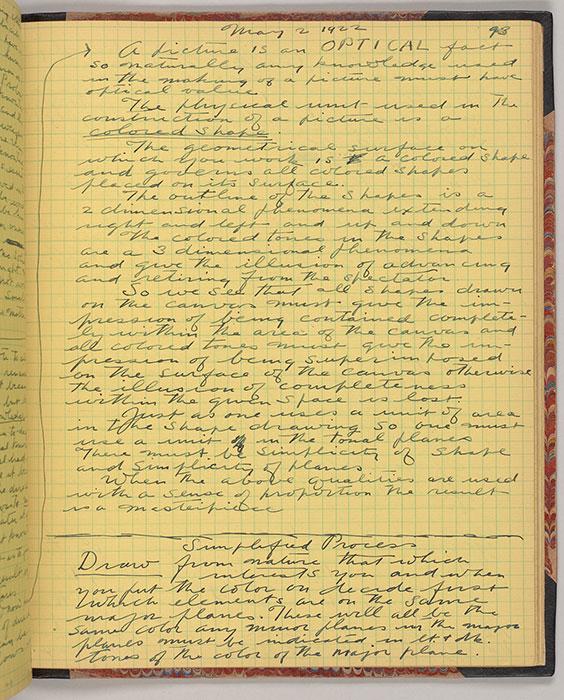 May 2 1922
93
A picture is an OPTICAL fact
so naturally any knowledge used
in the making of a picture must have
optical value
The physical unit used in The
construction of a picture is a
colored shape.
The geometrical surface on
which you work is a colored shape
and governs all colored shapes
placed on its surface.
The outline of the shapes is a
2 dimensional phenomena extending
right and left and up and down
The colored tones in the shapes
are a 3 dimensional phenomena
and give the illusion of advancing
and retiring from the spectator
So we see that all shapes drawn
on the canvas must give the im-
pression of being contained complete-
ly within the area of the canvas and
all colored tones must give the im-
pression of being superimposed
on the surface of the canvas otherwise
the illusion of completeness
within the given space is lost.
Just as one uses a unit of area
in the shape drawing so one must
use a unit in the tonal planes
There must be simplicity of shape
and simplicity of planes
When the above qualities are used
with a sense of proportion the result
is a masterpiece
Simplified Process
Draw from nature that which
interests you and when
you put the color on decide first
which elements are on the same
major planes. These will all be the
same color any minor planes in the major
planes must be indicated in lt & dk
tones of the color of the major plane.